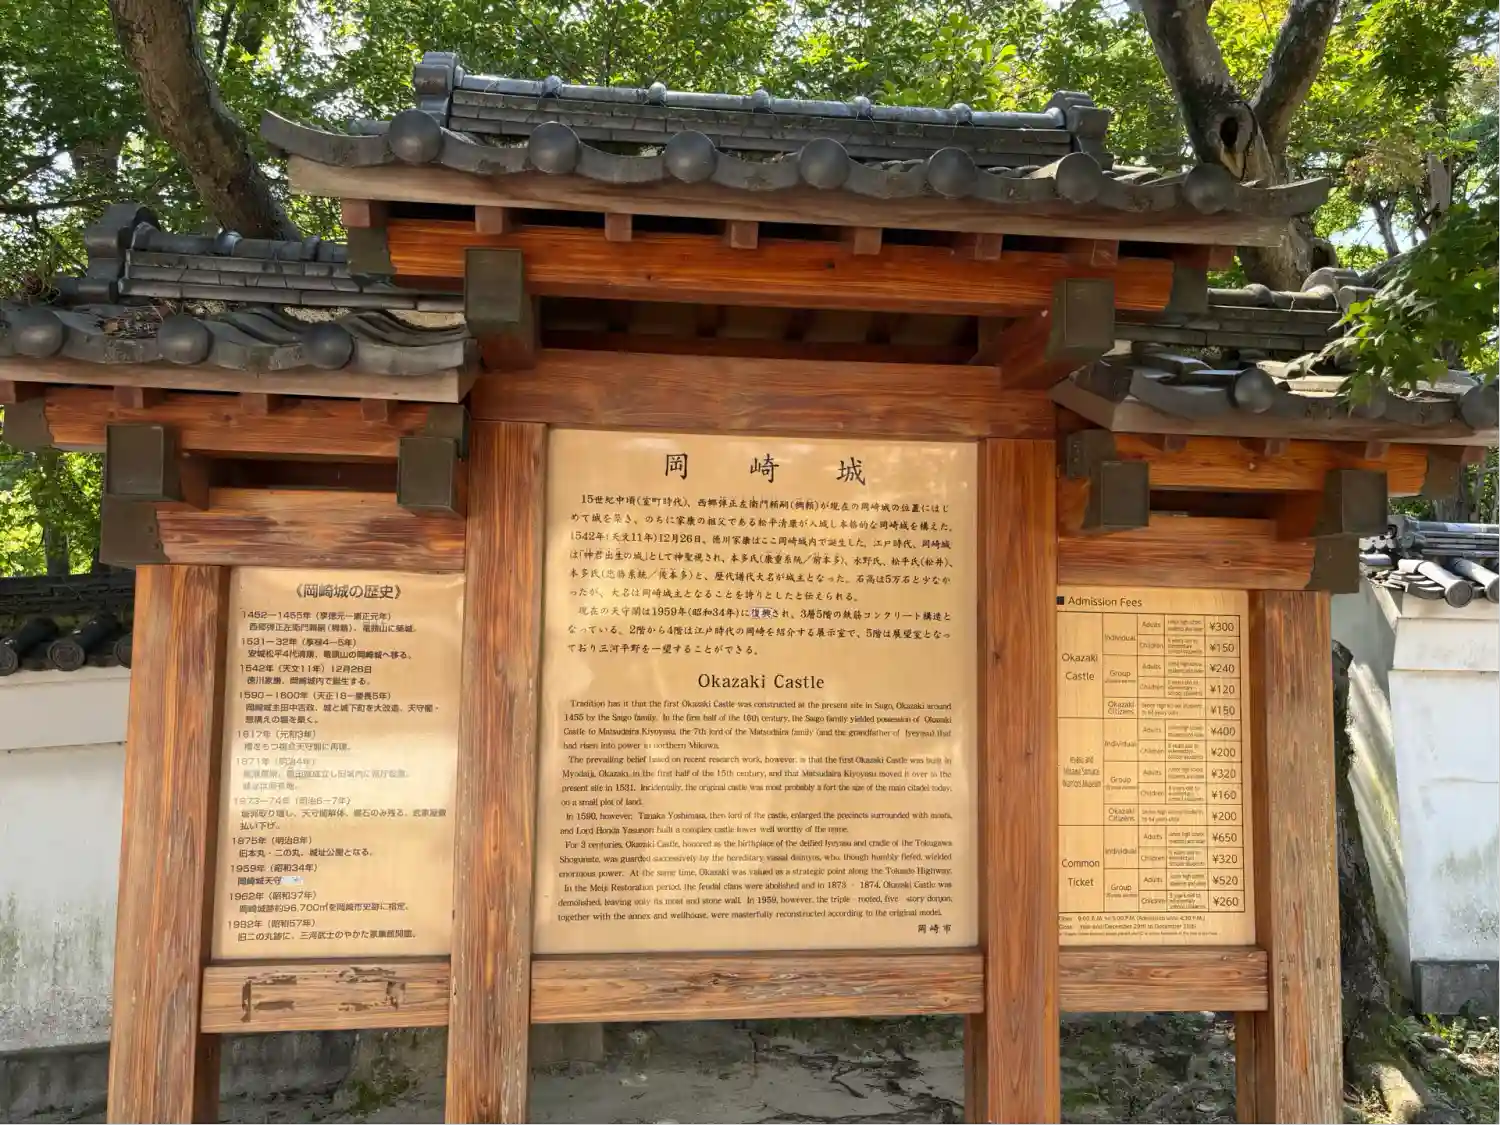 《岡崎城の歴史》
1452－1455年（享徳元－康正元年）
西郷弾正左衛門頼嗣（稠頼）、竜頭山に築城。
1531－32年（享禄4－5年）
安城松平4代清康、竜頭山の岡崎城へ移る。
1542年（天文11年）12月26日
徳川家康、岡崎城内で誕生する。
1590－1600年（天正18－慶長5年）
岡崎城主田中吉政、城と城下町を大改造、天守閣・
惣構えの堀を築く。
1617年（元和3年）
櫓をもつ複合天守閣に再建。
1871年（明治4年）
1873－74年（明治6－7年）
城郭取り壊し、天守閣解体、礎石のみ残る、武家屋敷
払い下げ。
1875年（明治8年）
旧本丸・二の丸、城址公園となる。
1959年（昭和34年）
岡崎城天守
1962年（昭和37年）
岡崎城跡約96,700㎡を岡崎市史跡に指定。
1982年（昭和57年）
旧二の丸跡に、三河武士のやかた家康館開館。
岡崎城
15世紀中頃（室町時代）、西郷弾正左衛門頼嗣（稠頼）が現在の岡崎城の位置にはじ
めて城を築き、のちに家康の祖父である松平清康が入城し本格的な岡崎城を構えた。
1542年（天文11年）12月26日、徳川家康はここ岡崎城内で誕生した。江戸時代、岡崎城
は「神君出生の城」として神聖視され、本多氏（康重系統／前本多）、水野氏、松平氏（松井）、
本多氏（忠勝系統／後本多）と、歴代譜代大名が城主となった。石高は5万石と少なか
ったが、大名は岡崎城主となることを誇りとしたと伝えられる。
現在の天守閣は1959年（昭和34年）に復興され、3層5階の鉄筋コンクリート構造と
なっている。2階から4階は江戸時代の岡崎を紹介する展示室で、5階は展望室となっ
ており三河平野を一望することができる。
Okazaki Castle
Tradition has it that the first Okazaki Castle was constructed at the present site in Sugo, Okazaki around
1455 by the Saigo family. In the first half of the 16th century, the Saigo family yielded possession of Okazaki
Castle to Matsudaira Kiyoyasu, the 7th lord of the Matsudaira family (and the grandfather of Ieyasu) that
had risen into power in northern Mikawa.
The prevailing belief based on recent research work, however, is that the first Okazaki Castle was built in
Myodaiji, Okazaki, in the first half of the 15th century, and that Matsudaira Kiyoyasu moved it over to the
present site in 1531. Incidentally, the original castle was most probably a fort the size of the main citadel today,
on a small plot of land.
In 1590, however, Tanaka Yoshimasa, then lord of the castle, enlarged the precincts surrounded with moats,
and Lord Honda Yasunori built a complex castle tower well worthy of the name.
For 3 centuries, Okazaki Castle, honored as the birthplace of the deified Ieyasu and cradle of the Tokugawa
Shogunate, was guarded successively by the hereditary vassal daimyos, who, though humbly fiefed, wielded
enormous power. At the same time, Okazaki was valued as a strategic point along the Tokaido Highway.
In the Meiji Restoration period, the feudal clans were abolished and in 1873 - 1874, Okazaki Castle was
demolished, leaving only its moat and stone wall. In 1959, however, the triple - roofed, five - story donjon,
together with the annex and wellhouse, were masterfully reconstructed according to the original model.
岡崎市
■ Admission Fees
Okazaki Castle
Individual Adults ¥300
Children ¥150
Group Adults ¥240
Children ¥120
Okazaki Citizens ¥150
Individual Adults ¥400
Children ¥200
Group Adults ¥320
Children ¥160
Okazaki Citizens ¥200
Common Ticket
Individual Adults ¥650
Children ¥320
Group Adults ¥520
Children ¥260